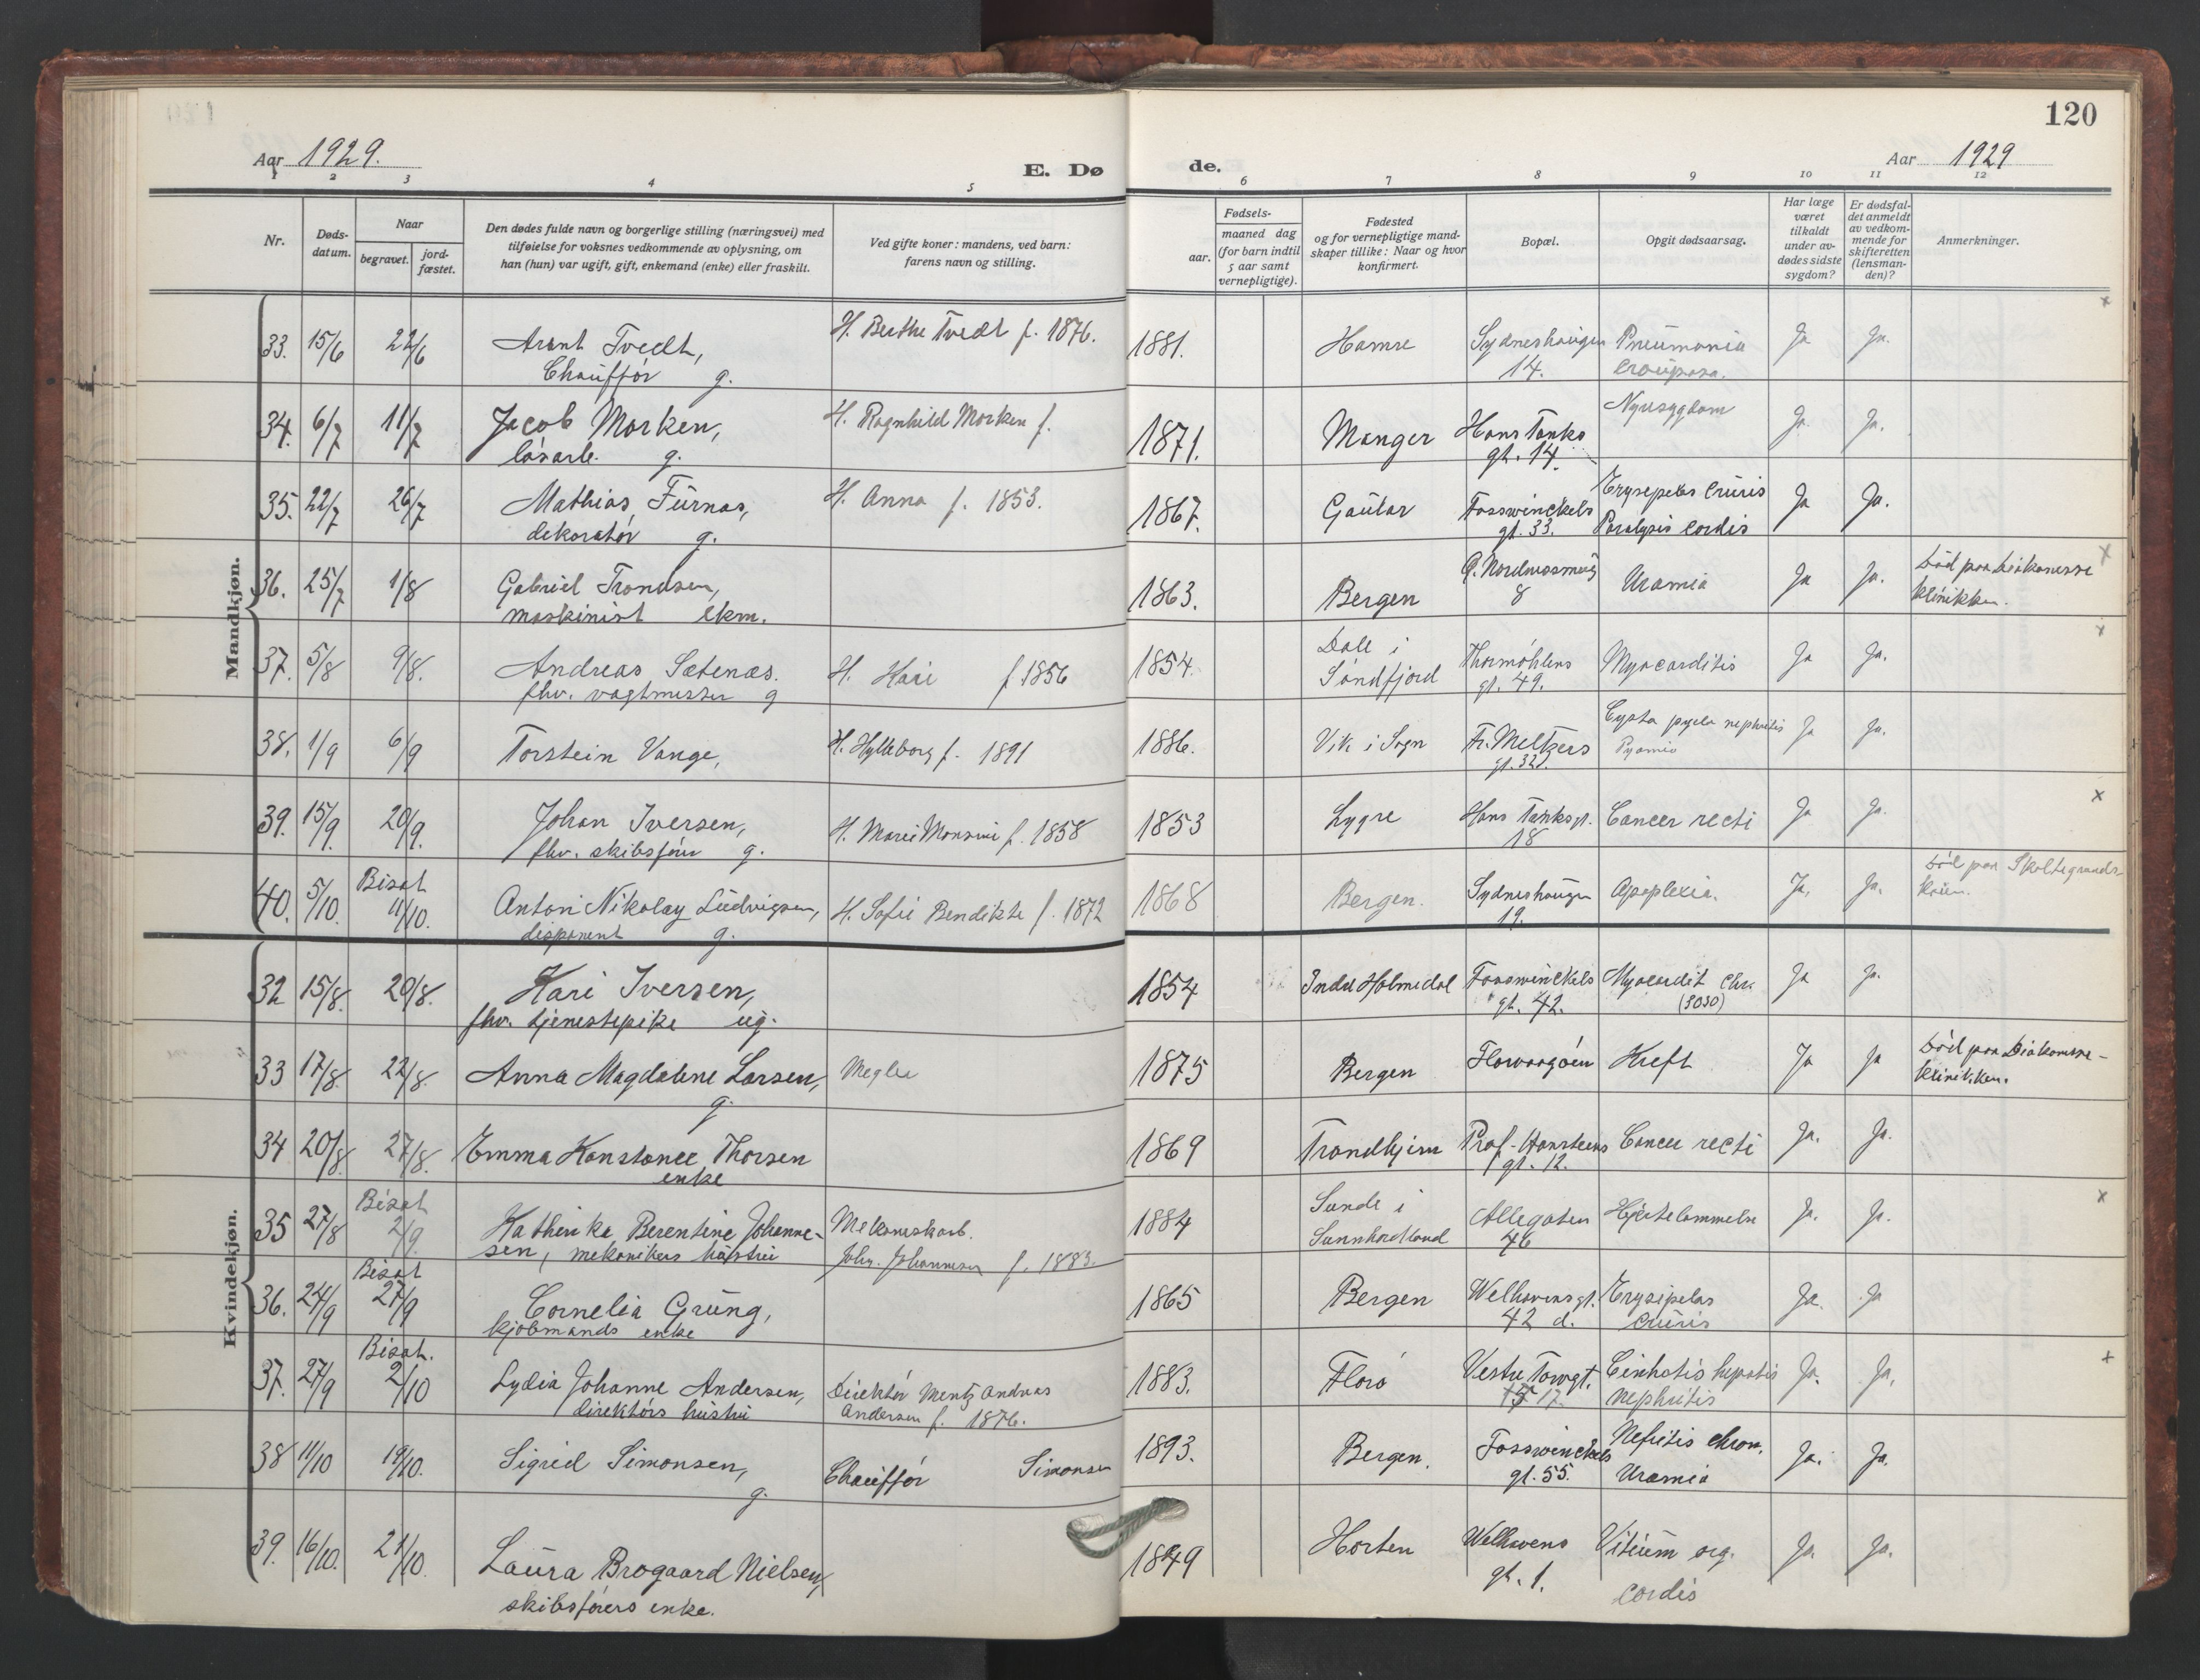 120
Aar 1929.
E. Dø
de.
Aar 1929
1 2 3 4 5 6 7 8 9 10 11 12
Nr.
Døds-
datum.
Naar
begravet.
jord-
fæstet.
Den dødes fulde navn og borgerlige stilling (næringsvei) med
tilføielse for voksnes vedkommende av oplysning, om
han (hun) var ugift, gift, enkemand (enke) eller fraskilt.
Ved gifte koner: mandens, ved barn:
farens navn og stilling.
aar.
Fødsels-
maaned dag
(for barn indtil
5 aar samt
vernepligtige).
Fødested
og for vernepligtige mand-
skaper tillike: Naar og hvor
konfirmert.
Bopæl.
Opgit dødsaarsag.
Har læge
været
tilkaldt
under av-
dødes sidste
sygdom?
Er dødsfal-
det anmeldt
av vedkom-
mende for
skifteretten
(lensman-
den)?
Anmerkninger.
Mandkjøn.
33. 15/6 22/6 Arent Tvedt, H. Berthe Tvedt f. 1876. 1881. Hamre Sydneshaugen Pneumonia Ja Ja. x
Chauffør g. 14. crouposa.
34. 6/7 11/7 Jacob Morken, H. Ragnhild Morken f. 1871. Manger Hans Tanks Nyresygdom Ja Ja.
løsarb. g. gt. 14.
35. 22/7 26/7 Mathias Furnas, H. Anna f. 1853. 1867. Gaular Fosswinckels Erysepelas cruris Ja Ja.
dekoratør g. gt. 33. Paralysis cordis
36. 25/7 1/8 Gabriel Trondsen, 1863. Bergen Nordnæsmug Uramia Ja Ja. Død paa Diakonisse x
maskinist ekm. 8 klinikken.
37. 5/8 9/8. Andreas Sætenæs. H. Kari f 1856 1854. Dale i Søndfjord Thormøhlens Myocarditis Ja Ja. x
fhv. vagtmester g gt. 49.
38. 1/9 6/9 Torstein Vange, H. Hylleborg f. 1891 1886. Vik i Sogn Fr. Meltzers Cysto pyelo nephritis Ja Ja.
gt. 32. Pyamia
39. 15/9. 20/9. Johan Iversen, H. Marie Monsine f. 1858 1853 Lygre Hans Tanksgt. Cancer recti Ja Ja. x
fhv. skibsfører g. 18
40. 5/10. Bisat 11/10. Anton Nikolay Ludvigsen, H. Sofie Bendikte f. 1872 1868 Bergen. Sydneshaugen Apoplexia. Ja. Ja. Død paa Skoltegrunds-
disponent g. 19. kaien.
Kvindekjøn.
32 15/8. 20/8. Kari Iversen, 1854 Indre Holmedal Fosswinckels Myocardit chr. Ja Ja.
fhv. tjenestepike ug. gt. 42. (3030)
33 17/8 22/8. Anna Magdalene Larsen, Megler 1875 Bergen Florvaagøen Kreft Ja Ja Død paa Diakonisse-
g. klinikken.
34 20/8. 27/8. Emma Konstance Thorsen 1869 Trondhjem Prof. Hansteens Cancer recti Ja. Ja.
enke gt. 12.
35 27/8 Bisat 2/9. Kathinka Berentine Johanne- Mekaniskarb. 1884 Sunde i Allegaten Hjertelammelse Ja. Ja. x
sen, mekanikers hustru Johs. Johannesen f. 1883. Sunnhordland 46
36. 24/9 Bisat 27/9 Cornelia Grung, 1865 Bergen Welhavensgt. Erysipelas Ja. Ja
kjøbmands enke 42 d. cruris
37. 27/9 Bisat. 2/10 Lydia Johanne Andersen, Direktør Mentz Andreas 1883. Florø Vestre Torvgt. Cirrhotis hepatis Ja. Ja. x
direktørs hustru Andersen f. 1876. 17. nephritis
38 11/10 19/10. Sigrid Simonsen, Chauffør Simonsen 1893. Bergen. Fosswinckels Nefritis chron. Ja. Ja.
g. gt. 55. Uramia
39. 16/10. 21/10. Laura Brogaard Nielsen, 1849 Horten Welhavens Vitium org. Ja. Ja.
skibsførers enke. gt. 1. cordis